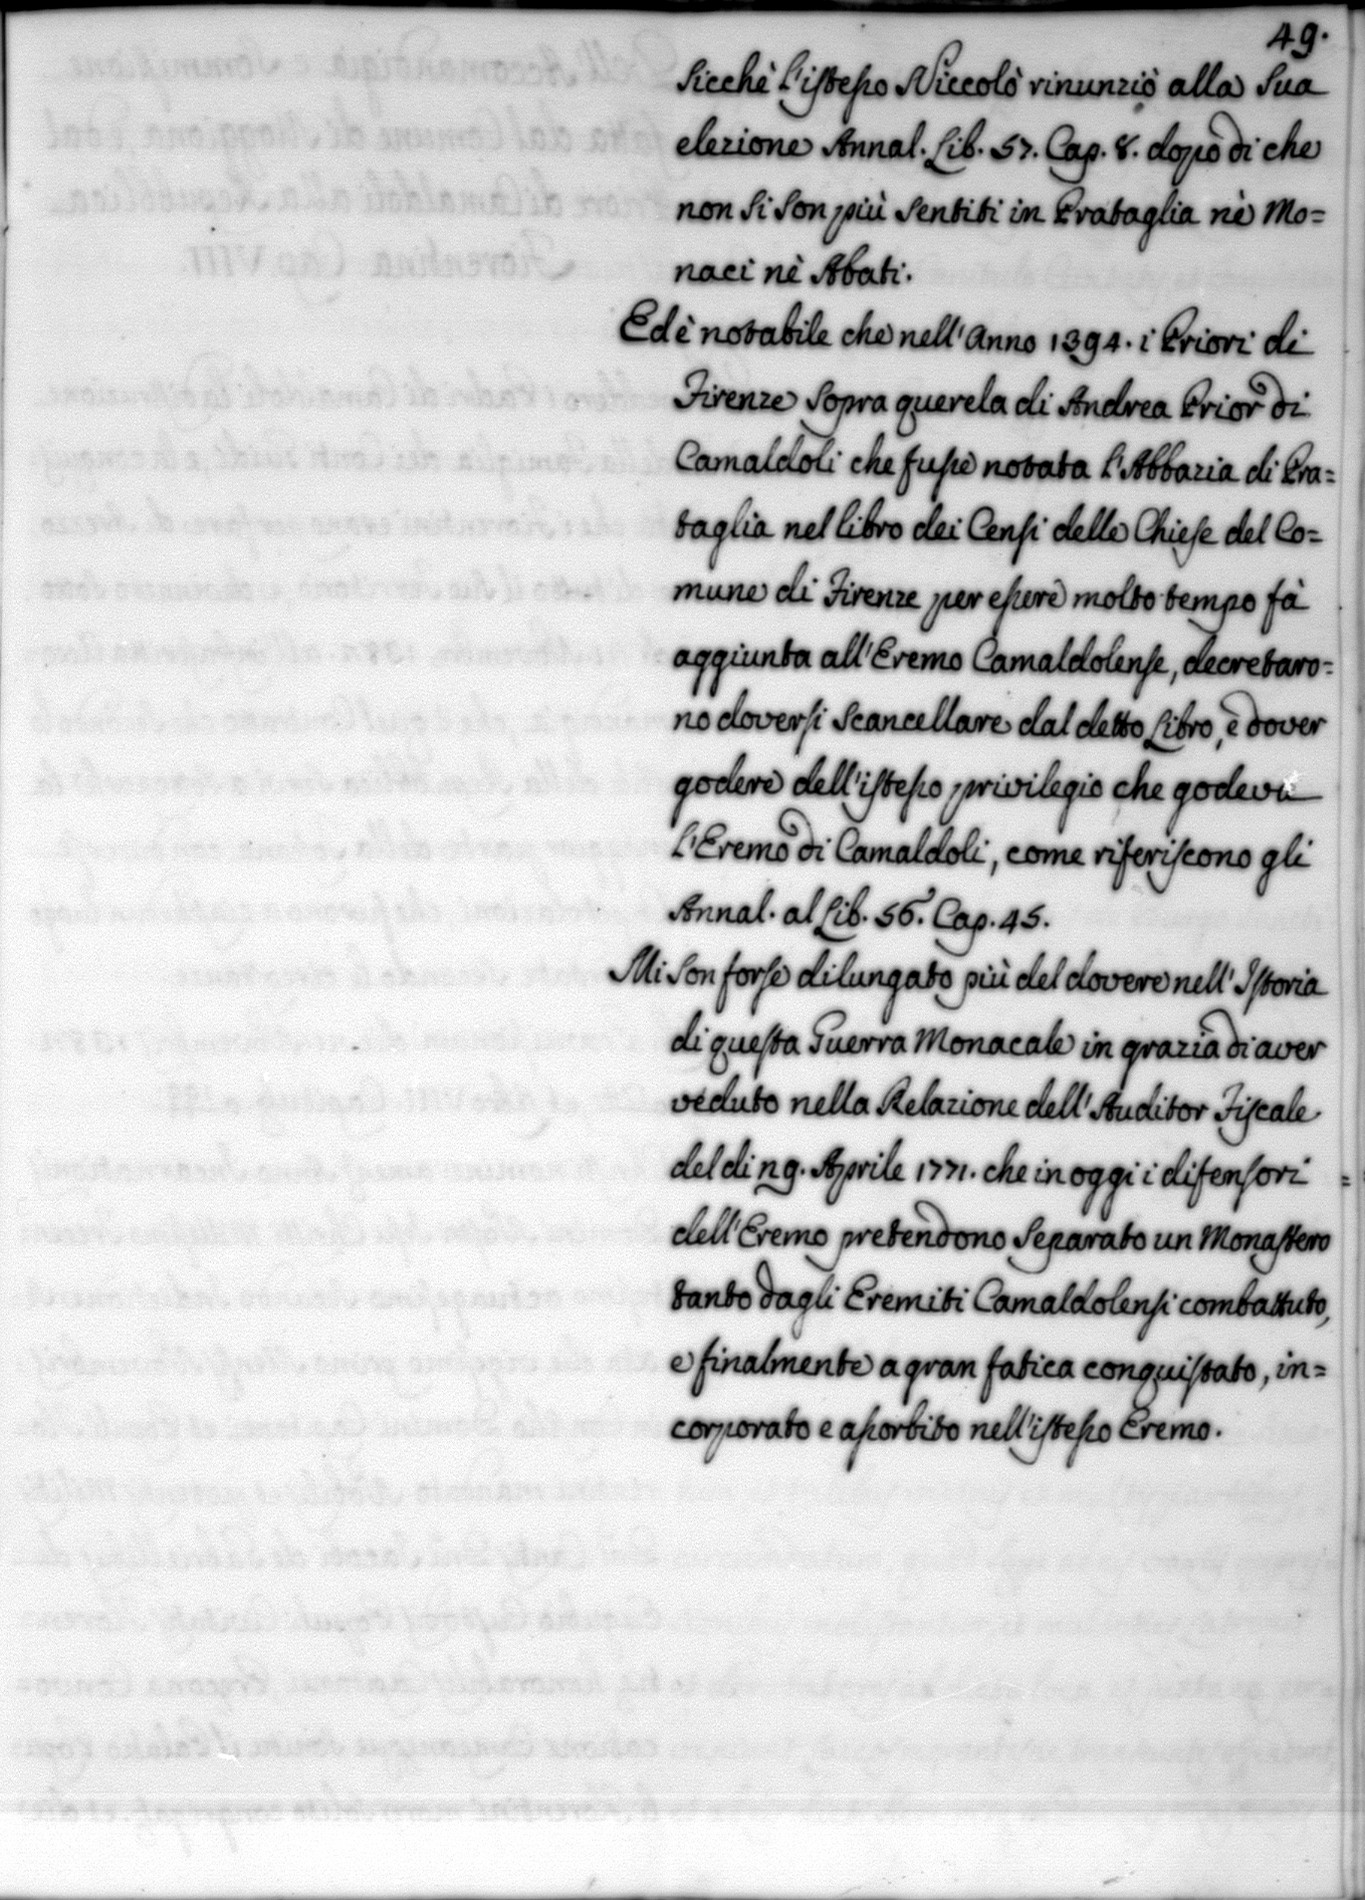 49.
sicchè l'istesso Niccolò rinunziò alla sua
elezione Annal. Lib. 57. Cap. 8. dopo di che
non si son più sentiti in Prataglia nè Mo=
naci nè Abati.
Ed è notabile che nell'Anno 1394. i Priori di
Firenze sopra querela di Andrea Prior di
Camaldoli che fusse notata l'Abbazia di Pra=
taglia nel libro dei Censi delle Chiese del Co=
mune di Firenze per essere molto tempo fà
aggiunta all'Eremo Camaldolense, decretaro=
no doversi scancellare dal detto Libro, e dover
godere dell'istesso privilegio che godeva
l'Eremo di Camaldoli, come riferiscono gli
Annal. al Lib. 56. Cap. 45.
Mi son forse dilungato più del dovere nell'Istoria
di questa Guerra Monacale in grazia di aver
veduto nella Relazione dell'Auditor Fiscale
del di Aprile 1771. che in oggi i difensori
dell'Eremo pretendono separato un Monastero
tanto dagli Eremiti Camaldolensi combattuto,
e finalmente a gran fatica conquistato, in=
corporato e assorbito nell'istesso Eremo.